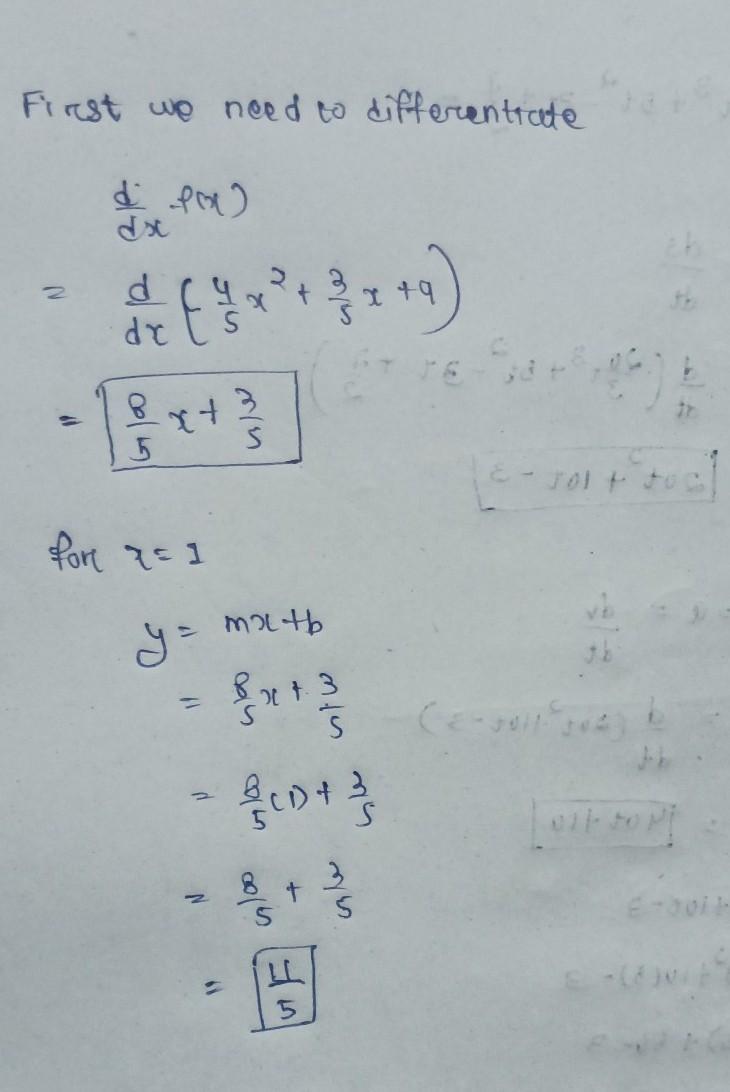 First we need to differentiate
d/dx f(x)
= d/dx (4/5 x² + 3/5 x + 9)
= 8/5 x + 3/5
for x = 1
y = mx + b
= 8/5 x + 3/5
= 8/5 (1) + 3/5
= 8/5 + 3/5
= 11/5